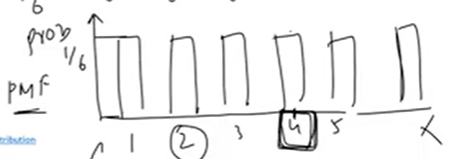 6
prob
1/6
PMF
1 2 3 4 5 X
tribution